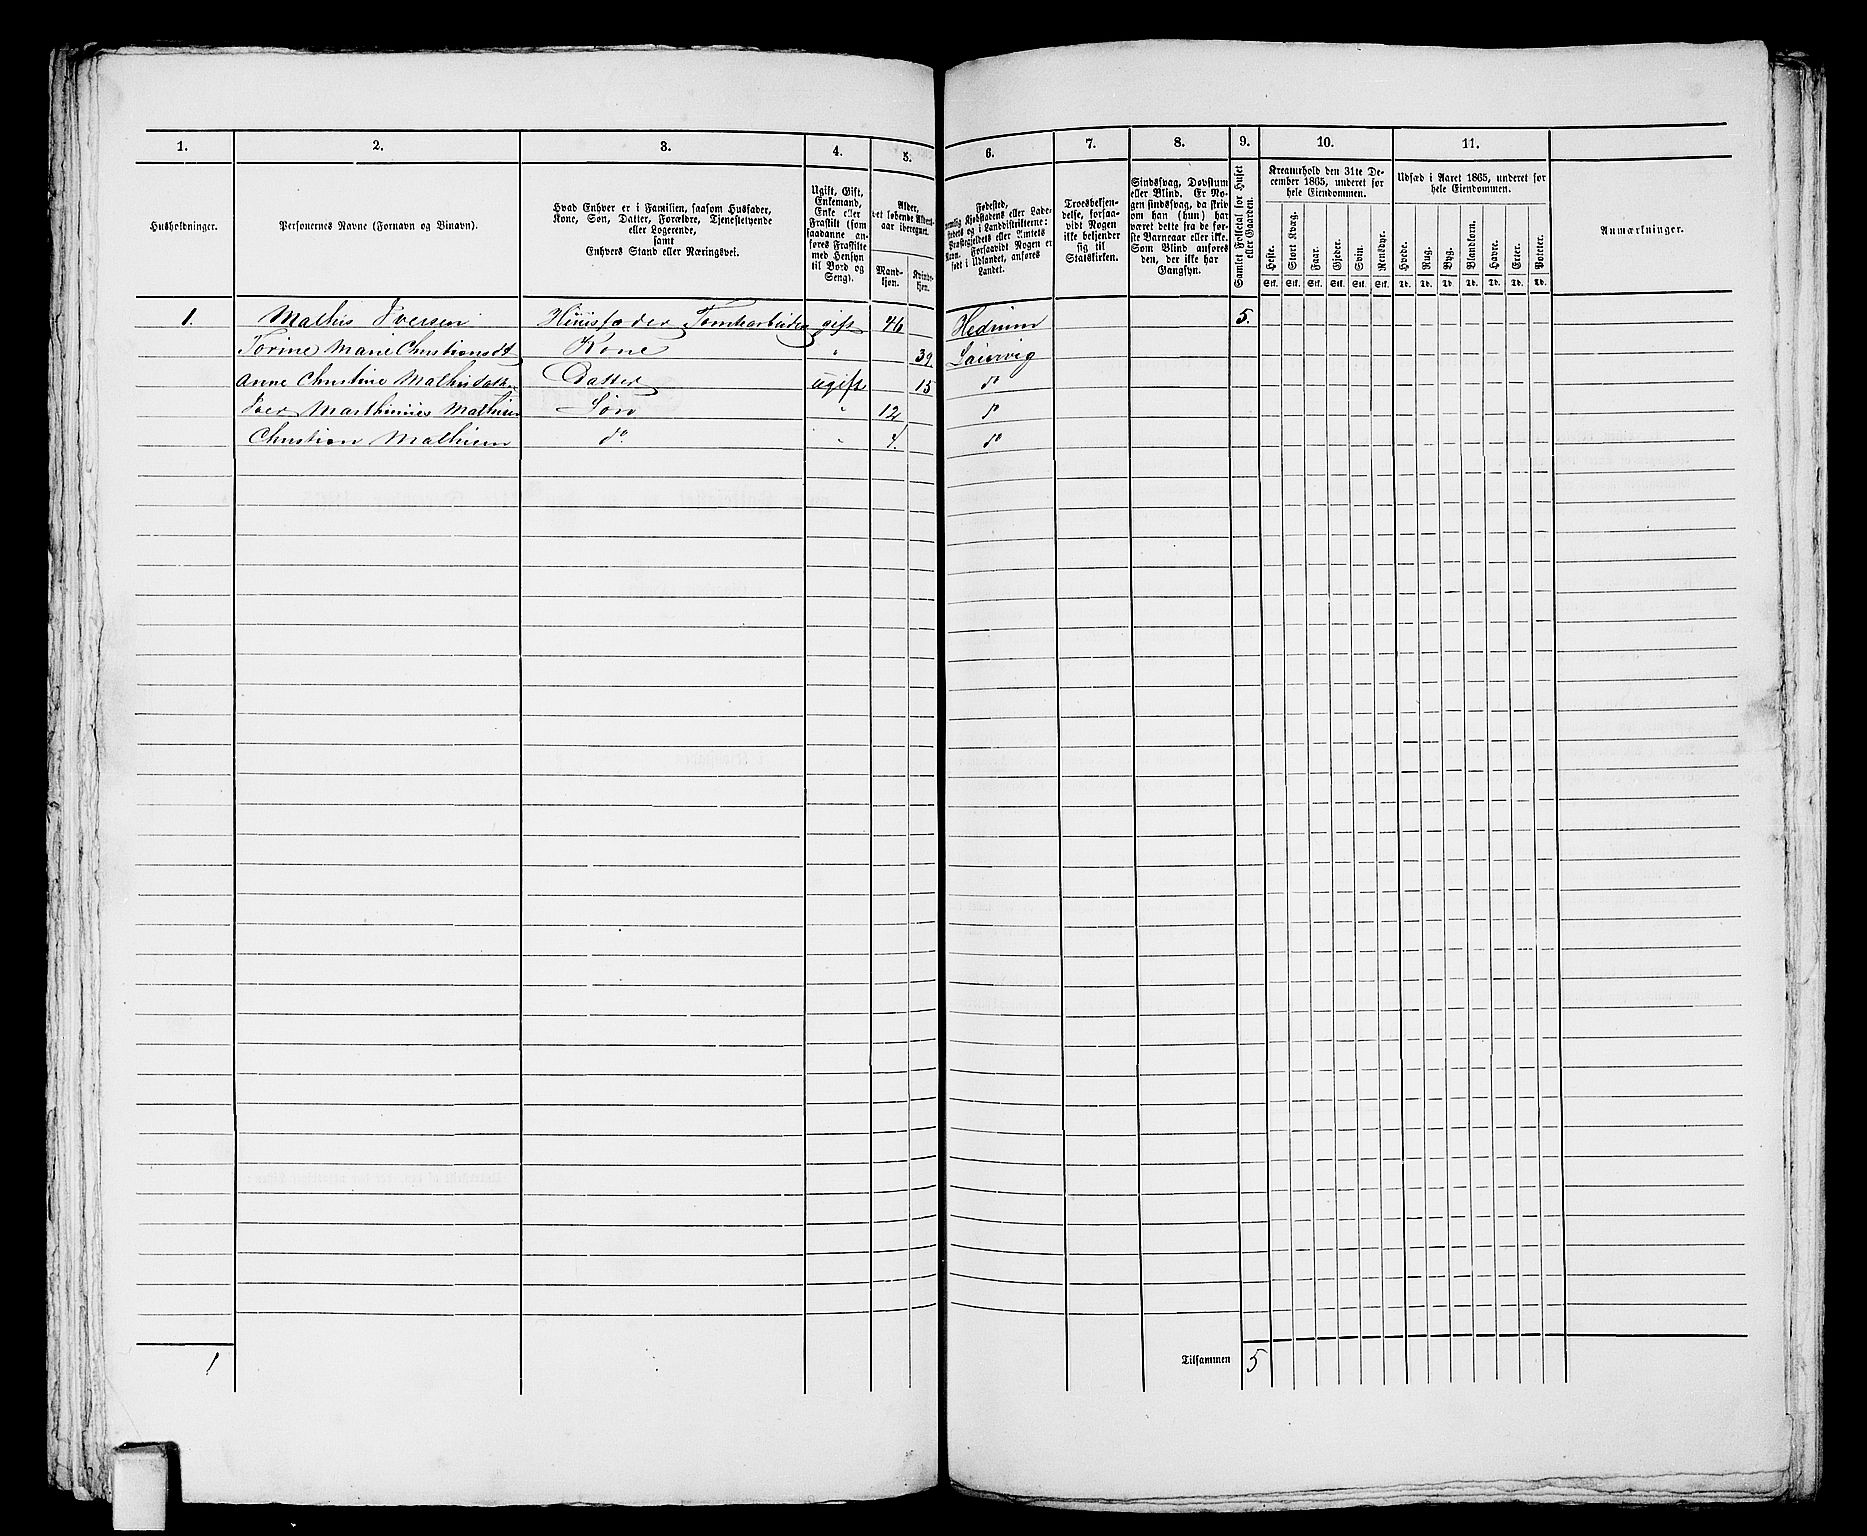 1. 2. 3. 4. 5. 6. 7. 8. 9. 10. 11.
Husholdninger.
Personernes Navne (Fornavn og Binavn).
Hvad Enhver er i Familien, saasom Husfader,
Kone, Søn, Datter, Forældre, Tjenestetyende
eller Logerende,
samt
Enhvers Stand eller Næringsvei.
Ugift, Gift,
Enkemand,
Enke eller
Fraskilt (som
saadanne an-
føres Fraskilte
med Hensyn
til Bord og
Seng).
Alder,
det løbende Alders-
aar iberegnet.
Mand-
kjøn.
Kvinde-
kjøn.
Fødested,
nemlig Kjøbstadens eller Lade-
stedets og i Landdistrikterne:
Præstegjeldets eller Amtets
Navn. Forsaavidt Nogen er
født i Udlandet, anføres
Landet.
Troesbekjen-
delse, forsaa-
vidt Nogen
ikke bekjender
sig til
Statskirken.
Sindssvag, Døvstum
eller Blind. Er No-
gen sindssvag, da skriv
om han (hun) har
været dette fra de før-
ste Barneaar eller ikke.
Som Blind anføres
den, der ikke har
Gangsyn.
Samlet Folketal for Huset
eller Gaarden.
Kreaturhold den 31te De-
cember 1865, underet for
hele Eiendommen.
Heste. Stort Kvæg. Faar. Gjeder. Svin. Rensdyr.
Stk. Stk. Stk. Stk. Stk. Stk.
Udsæd i Aaret 1865, underet for
hele Eiendommen.
Hvede. Rug. Byg. Blandkorn. Havre. Erter. Poteter.
Td. Td. Td. Td. Td. Td. Td.
Anmærkninger.
1. Mathis Iversen Huusfader Tomtarbeider gift 46 Hedrum 5.
Torine Marie Christiansdt Kone " 39 Laurvig
Anne Christine Mathisdatter Datter ugift 15 do
Iver Marthinius Mathisen Søn " 12 do
Christian Mathisen do " 4. do
1 Tilsammen 5